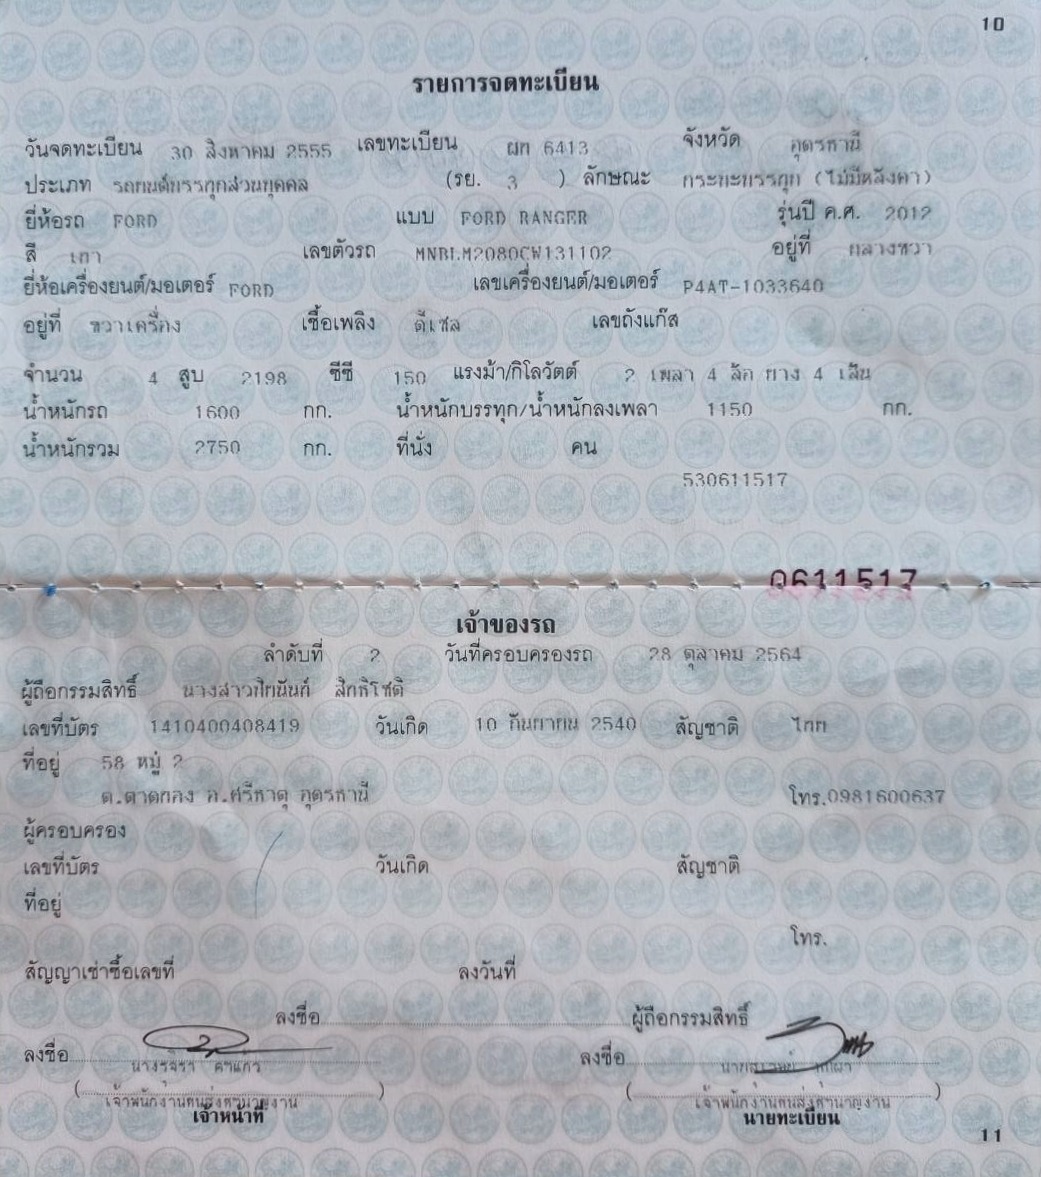 10
รายการจดทะเบียน
วันจดทะเบียน 30 สิงหาคม 2555 เลขทะเบียน ผก 6413 จังหวัด อุดรธานี
ประเภท รถยนต์บรรทุกส่วนบุคคล (รย. 3 ) ลักษณะ กระบะบรรทุก (ไม่มีหลังคา)
ยี่ห้อรถ FORD แบบ FORD RANGER รุ่นปี ค.ศ. 2012
สี เทา เลขตัวรถ MNBLM2080CW131102 อยู่ที่ กลางขวา
ยี่ห้อเครื่องยนต์/มอเตอร์ FORD เลขเครื่องยนต์/มอเตอร์ P4AT-1033640
อยู่ที่ ขวาเครื่อง เชื้อเพลิง ดีเซล เลขถังแก๊ส
จำนวน 4 สูบ 2198 ซีซี 150 แรงม้า/กิโลวัตต์ 2 เพลา 4 ล้อ ยาง 4 เส้น
น้ำหนักรถ 1600 กก. น้ำหนักบรรทุก/น้ำหนักลงเพลา 1150 กก.
น้ำหนักรวม 2750 กก. ที่นั่ง คน
530611517
0611517
เจ้าของรถ
ลำดับที่ 2 วันที่ครอบครองรถ 28 ตุลาคม 2564
ผู้ถือกรรมสิทธิ์ นางสาว สิทธิโชติ
เลขที่บัตร 1410400408419 วันเกิด 10 กันยายน 2540 สัญชาติ ไทย
ที่อยู่ 58 หมู่ 2
ต.ตาดทอง อ.ศรีธาตุ อุดรธานี โทร.0981600637
ผู้ครอบครอง
เลขที่บัตร วันเกิด สัญชาติ
ที่อยู่
โทร.
สัญญาเช่าซื้อเลขที่ ลงวันที่
ลงชื่อ ผู้ถือกรรมสิทธิ์
ลงชื่อ ลงชื่อ
(เจ้าพนักงานขนส่งชำนาญงาน) (เจ้าพนักงานขนส่งชำนาญงาน)
เจ้าหน้าที่ นายทะเบียน
11